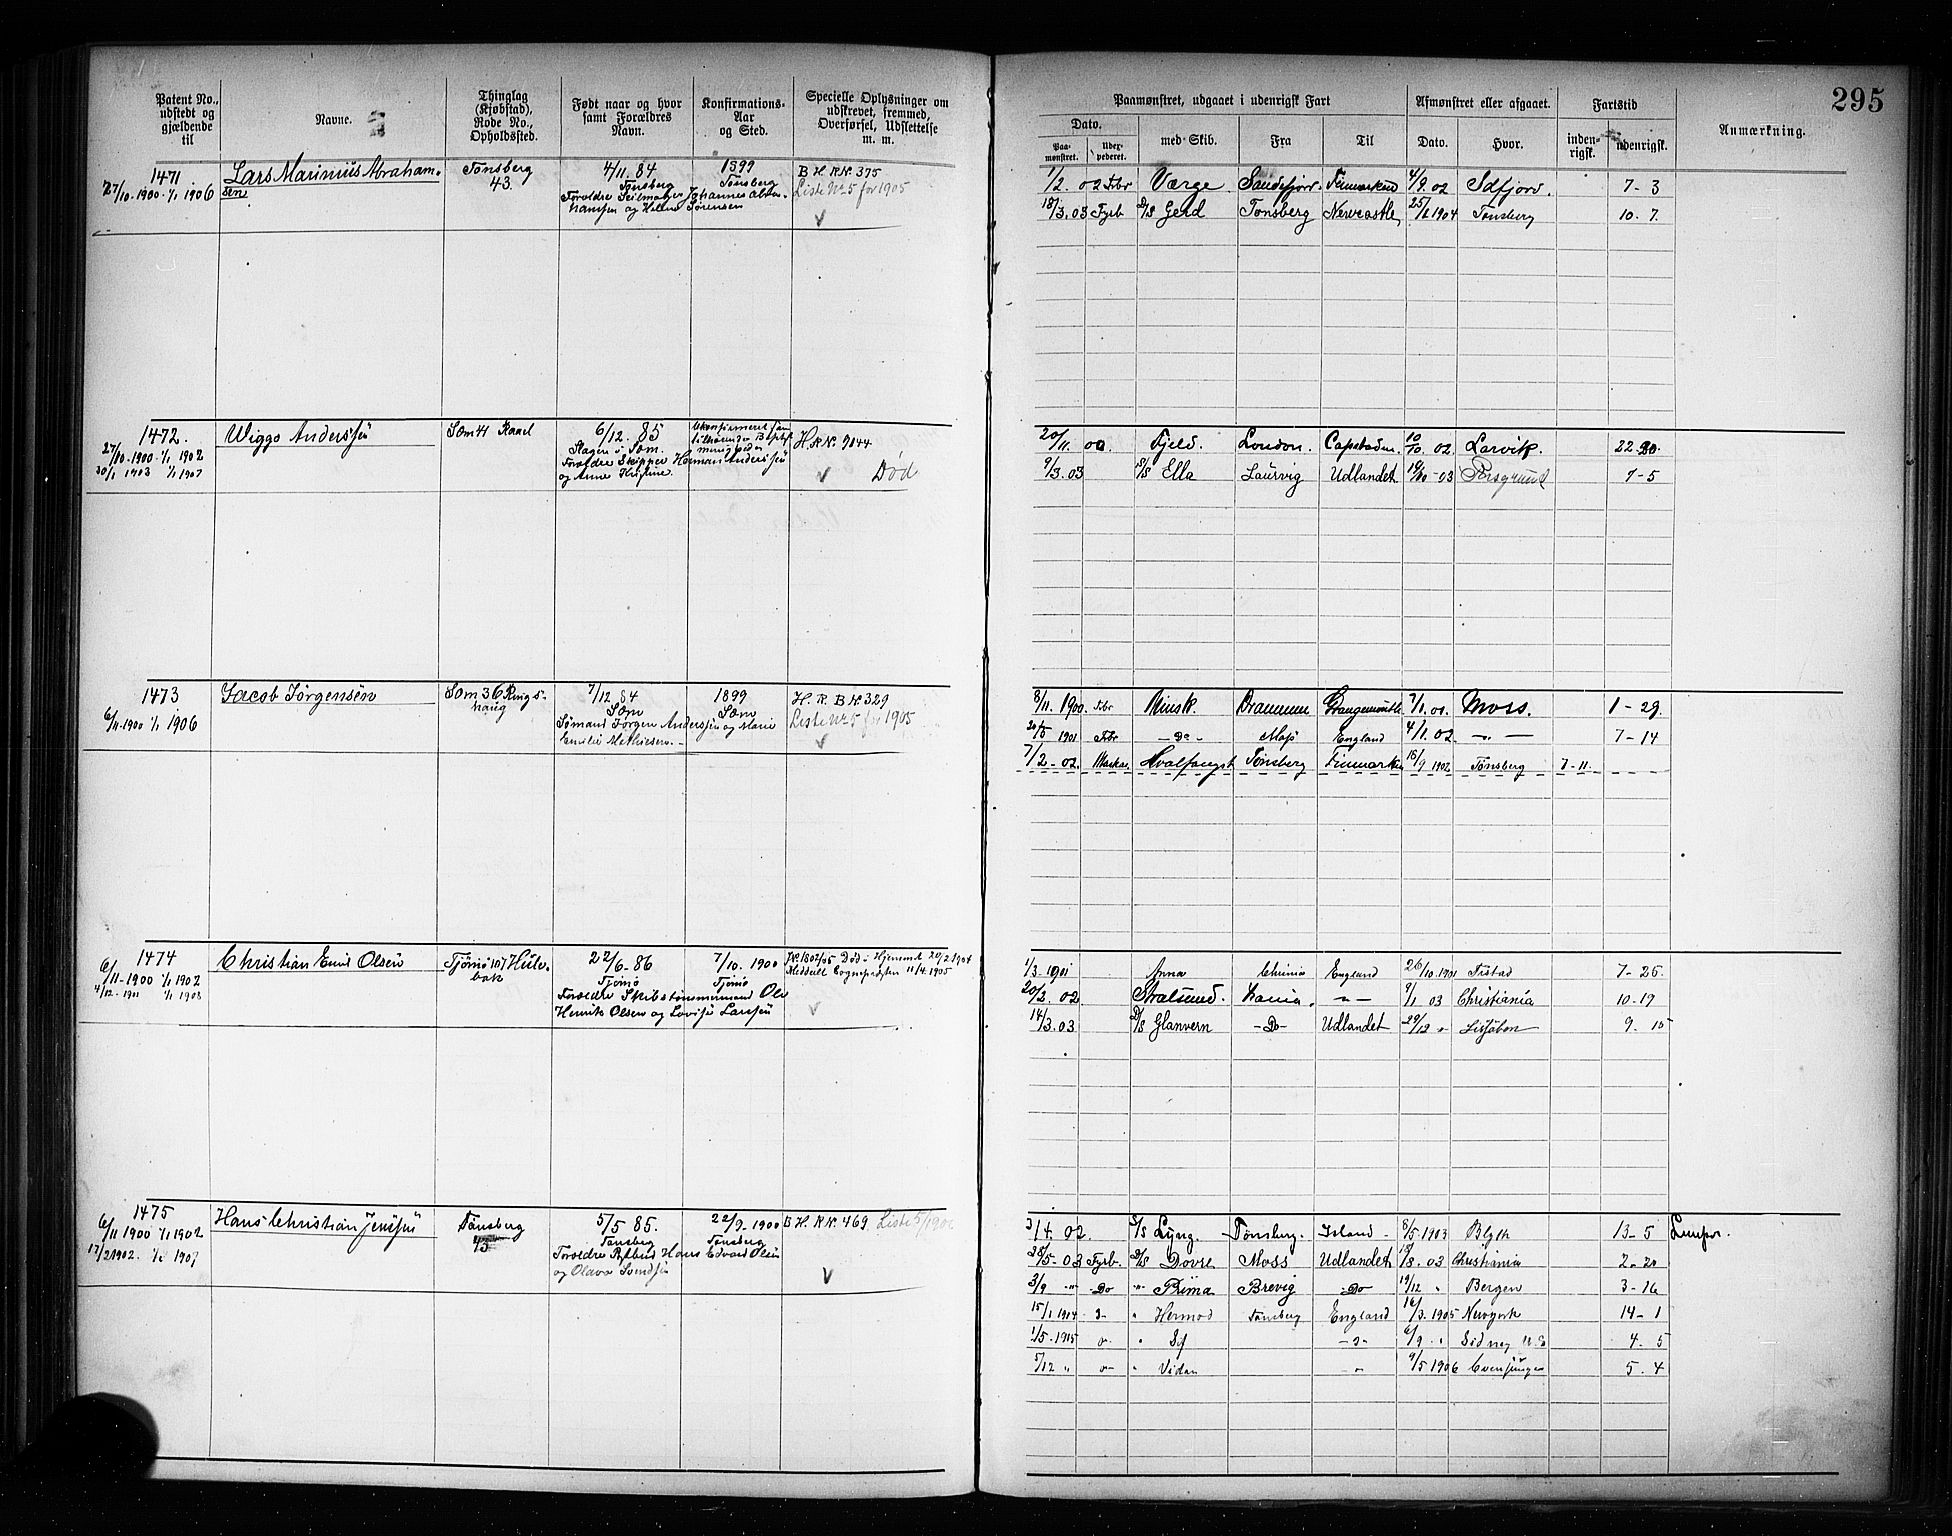 295
Patent No., udstedt og gjældende til
Navne.
Thinglag (Kjøbstad), Rode No., Opholdssted.
Født naar og hvor samt Forældres Navn.
Konfirmations-Aar og Sted.
Specielle Oplysninger om udskrevet, fremmed, Overførsel, Udslettelse m. m.
Paamønstret, udgaaet i udenrigsk Fart
Afmønstret eller afgaaet.
Fartstid
Anmærkning.
Dato.
Paa-mønstret.
med Skib.
Fra
Til
Dato.
Hvor.
inden-rigsk.
udenrigsk.
1471
27/10-1900-1/1 1906
Lars Marinius Abraham-
sen
Tønsberg
43.
4/11. 84
Tønsberg
Forældre Seilmager Johannes
og Helene Sørensen
1899
Tønsberg
B H. R.N. 375
Liste No 5 for 1905
1/2. 02 Værge Sandefjord Finmarken 4/9. 02 Sdfjord. 7-3
18/3. 03 Fyrb D/S Gerd Tønsberg Newcastle 1904 Tønsberg 10.7.
1472.
27/10.1900-1/1 1902
30/1 1903 1/1 1907
Wiggo Anderssen
Sem 41 Raael
6/12. 85
Slagen i Sem.
Forældre Skipper Herman Anderssen
og Anne Kristine.
H.R.N. 9044
Død
20/11. 00 Fjeld. London. Capstaden. 10/10 02. Larvik.
9/3.03 S/S Ella Laurvig Udlandet 03 Porsgrund 7-5
1473
6/11-1900 1/1 1906
Jacob Jørgensen
Sem 36 Rings-
haug
7/12 84
Sem
Sømand Jørgen Anderssen og Marie
Emilie Mathiesen.-
1899
Sem
H. R. B N. 329
Liste No 5 for 1905
8/11. 1900 Minsk. Drammen 7/1. 01. Moss. 1-29
1901 -Do- England 4/1.02. 7-14
7/2-02. Hvalfangst Tønsberg Finmarken 1902 Tønsberg 7-11.
1474
6/11-1900 1/1 1902
4/12-1901 1/1 1908
Christian Emil Olsen
Tjømø 107 Hule-
bak
22/6-86
Tjømø
Forældre Skibstømmermand Ole
Henrik Olsen og Lovise Larssen
7/10. 1900
Tjømø
Død i Hjemmet 20/2 1904
Meddelt Sogneprester 11/4.1905
1/3.1901 Anna Chrania England 26/10.1901 7-25.
20/2. 02 Stralsund. 9/1 03 Christiania 10-19
14/3.03 D/S Glanvern -Do- Udlandet 29/12 Lissabon 9. 15
1475
6/11 1900 1/1 1902
17/2 1902. 1907
Hans Christian Jenssen
Tønsberg
43
5/5 85.
Tønsberg
Forældre Hans Edvard Olsen
og Olava Svendsen
22/9-1900
Tønsberg
B H. R.N. 469
3/4. 02. S/S Lyng. Tønsberg. Island 8/5 1903 Blyth 13-5
28/5-03 Fyrb. D/S Dovre Moss Udlandet 03 Christiania 2-20
3/9 Do Prima Brevig Do 19/12 Bergen 3-16
15/1 1904 Hermod Tønsberg England 16/3. 1905 Newyork 14-1
1/5-1905 Sidney 4-5
5/12 Vidar 9/5 1906 5.4